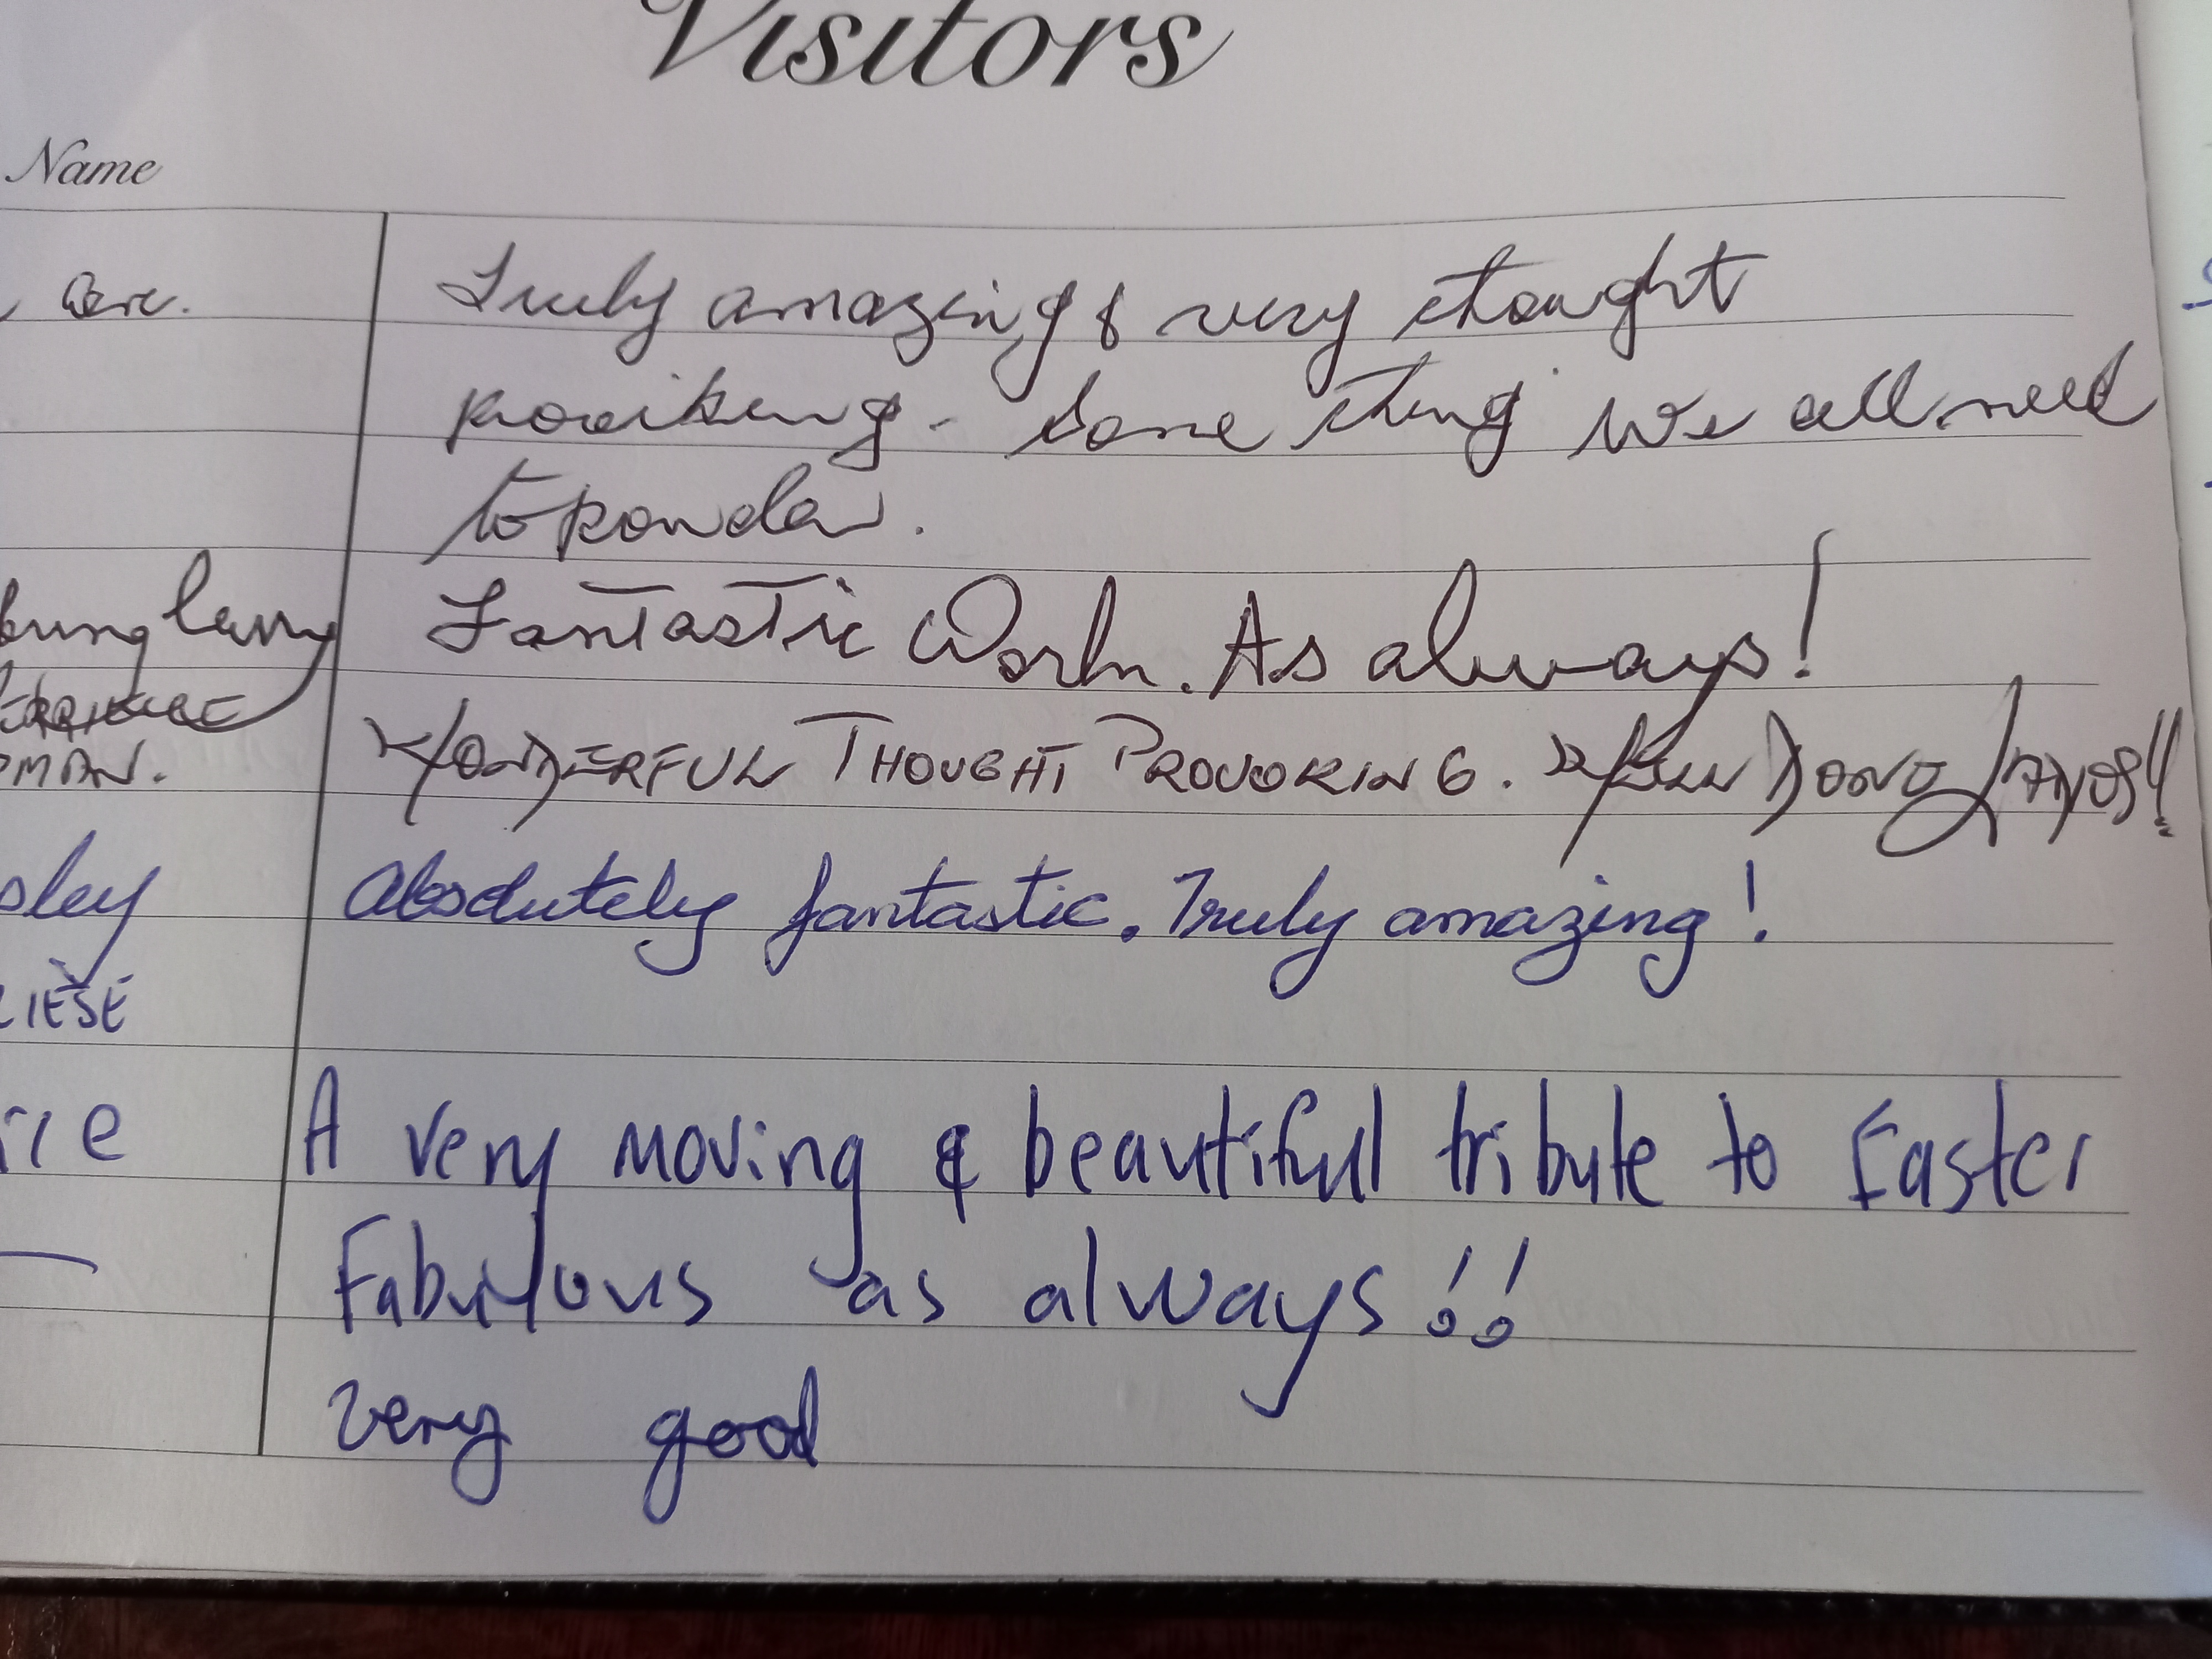 Visitors
Name
Truly amazing & very thought
provoiking - Some thing we all need
to ponder.
Fantastic Work. As always!
WONDERFUL THOUGHT PROVOKING. WELL DONE
OMAN.
Absolutely fantastic. Truly amazing!
sley
LIEŠE
A very moving & beautiful tribute to Easter
ice
Fabulous as always!!
very good